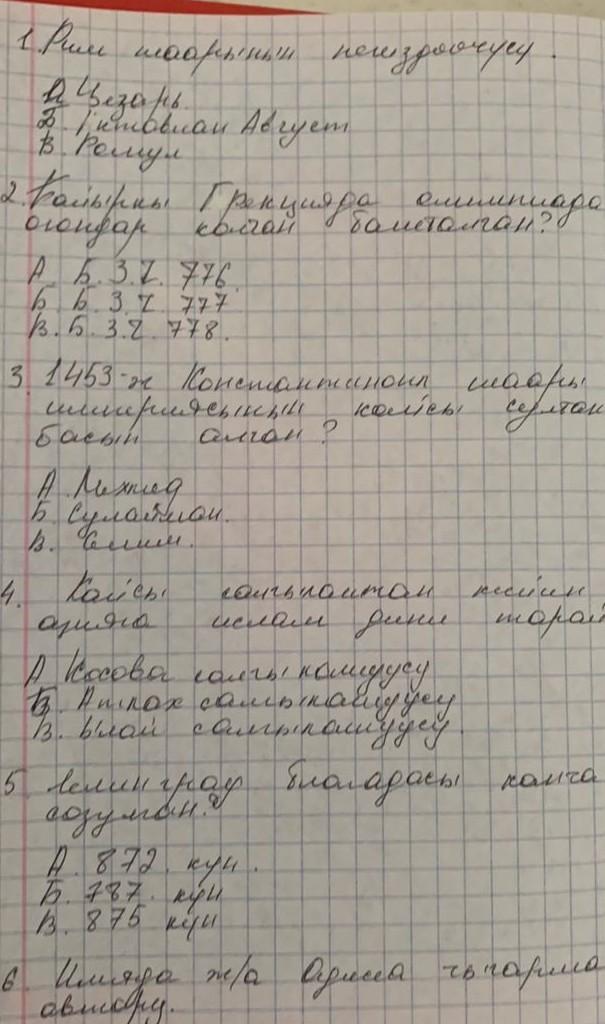 1. Рим шаарынын негиздөөчүсү.
А. Цезарь
Б. Октавиан Август
В. Ромул
2. Байыркы Грецияда олимпиада
оюндар качан башталган?
А. Б. З. Ч. 776
Б. Б. З. Ч. 777
В. Б. З. Ч. 778.
3. 1453-ж Константинопл шаары
империясынын кайсы султан
басып алган?
А. Мехмед
Б. Сулайман.
В. Селим.
4. Кайсы салгылаштан кийин
азияга ислам дини тарай
А. Косова салгылашуусу
Б. Атлах салгылашуусу
В. Ылай салгылашуусу.
5. Ленинград блокадасы канча
созулган?
А. 872 күн.
Б. 787 күн
В. 875 күн
6. Илиада ж/а Одиссея чыгарма
автору.